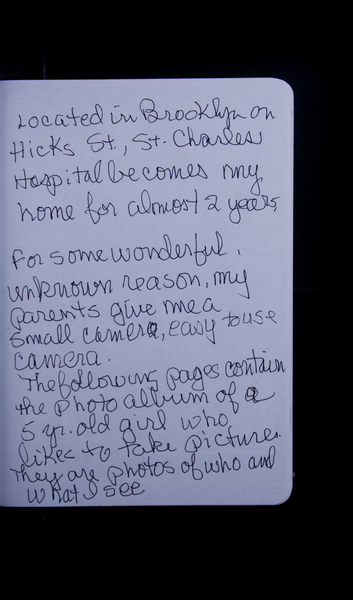 Located in Brooklyn on
Hicks St., St. Charles
Hospital becomes my
home for almost 2 years.
For some wonderful,
unknown reason, my
parents give me a
small camera, easy to use
camera.
The following pages contain
the photo album of a
5 yr. old girl who
likes to take pictures.
They are photos of who and
what I see